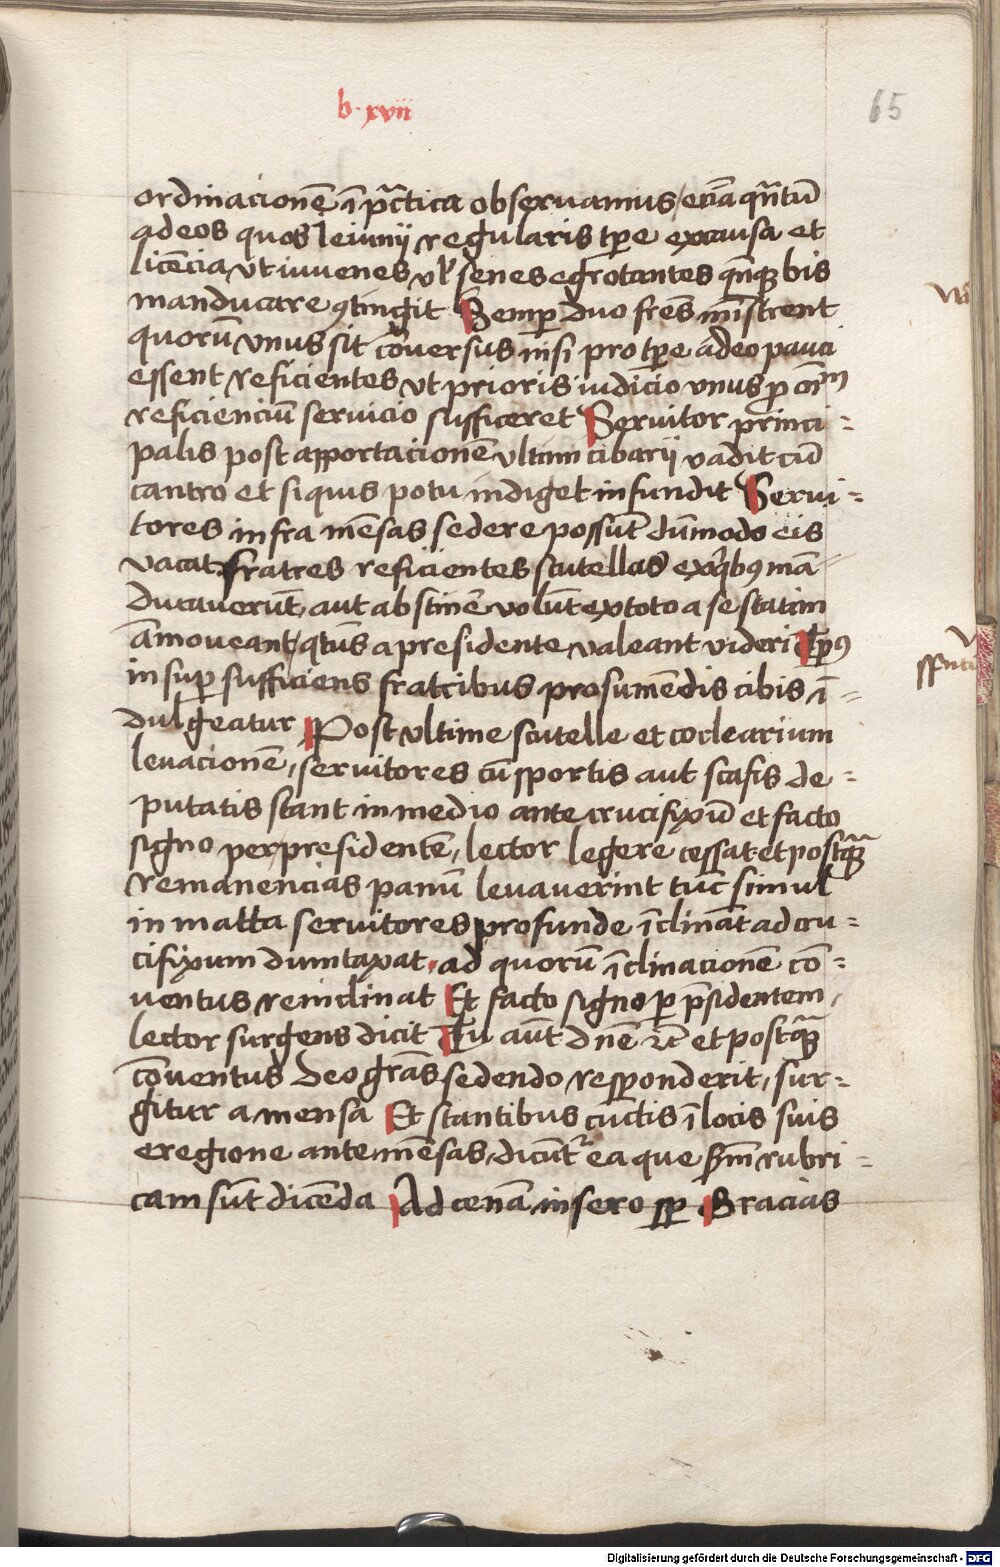 b · xvii
65
ordinacionē ī p̄ctica obseruamus / eciā qn̄tū
ad eos quos ieiunij regularis tp̄e ex causa et
licēcia vt iuuenes vl̓ senes egrotantes qn̄q̢ bis
manducare ꝯtingit Semp̱ duo fres̄ mīstrent
quorū vnus sit cōuersus nisi pro tp̄e adeo pauci
essent reficientes vt prioris iudicio vnus p̱ oīm
reficienciū seruicio sufficeret Seruitor princi-
palis post apportacionē vltimi cibarij vadit cū
cantro et siquis potu indiget infundit Serui-
tores infra mēsas sedere possūt dūmodo eis
vacat fratres reficientes scutellas ex q̓bꝯ mā-
ducauerūt aut abstinē̓ volūt ex toto a se statim
āmoueant / qtūs a presidente valeant videri Tp̱ꝯ
insup̱ sufficiens fratribus pro sumēdis cibis ī-
dulgeatur Post vltime scutelle et coclearium
leuacionē, seruitores cū sportis aut scafis de-
putatis stant in medio ante crucifixū et facto
signo per presidentē, lector legere cessat et postq̄
remanencias panū leuauerint tūc simul
in matta seruitores profunde īclināt ad cru-
cifixum dumtaxat. ad quorū īclinacionē cō-
uentus reinclinat Et facto signo p̱ p̄sidentem,
lector surgens dicit Tu aūt dn̄e ⁊c̄ et postq̄
cōuentus deo grās sedendo responderit, sur-
gitur a mensa Et stantibus cūctis ī locis suis
e regione ante mēsas, dicūt̓ ea que s̄m rubri-
cam sūt dicēda Ad cenā in sero sp̱ Gracias
Digitalisierung gefördert durch die Deutsche Forschungsgemeinschaft - DFG